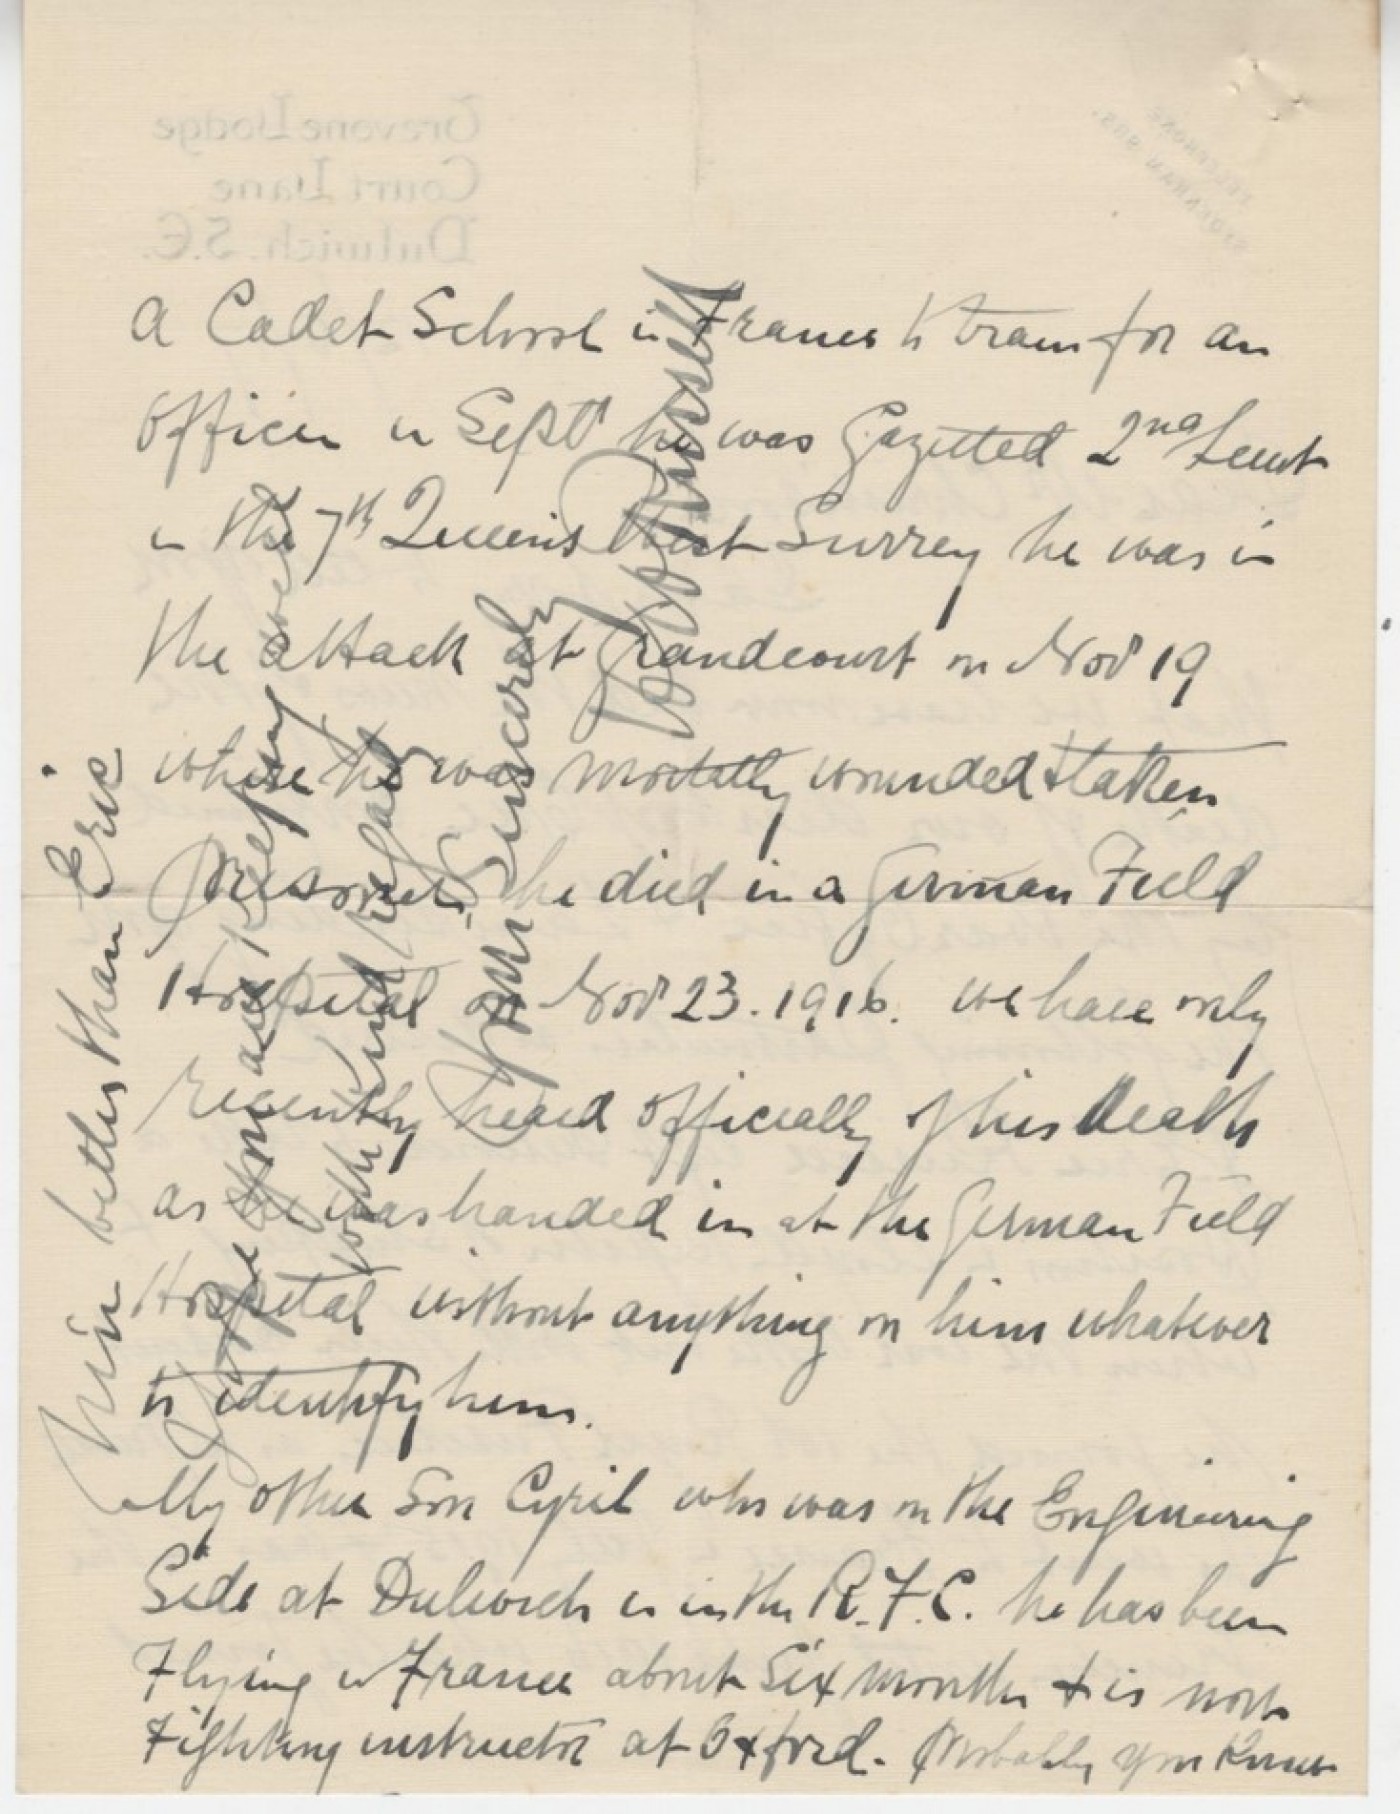 a Cadet School in France to train for an
officer in Sept he was Gazetted 2nd Lieut
in the 7th Queens West Surrey he was in
the attack at Grandcourt on Nov 19
where he was mortally wounded & taken
Prisoner he died in a German Field
Hospital on Nov 23. 1916. we have only
recently heard officially of his death
as he was handed in at the German Field
Hospital without anything on him whatever
to identify him.
My other Son Cyril who was on the Engineering
Side at Dulwich is in the R.F.C. he has been
Flying in France about Six months & is now
Fighting instructor at Oxford. Probably you knew
him better than Eric
hope you are keeping well
with kind regards
Yours Sincerely
Russell
Trevone Lodge
Court Lane
Dulwich. S.E.
TELEPHONE
SYDENHAM